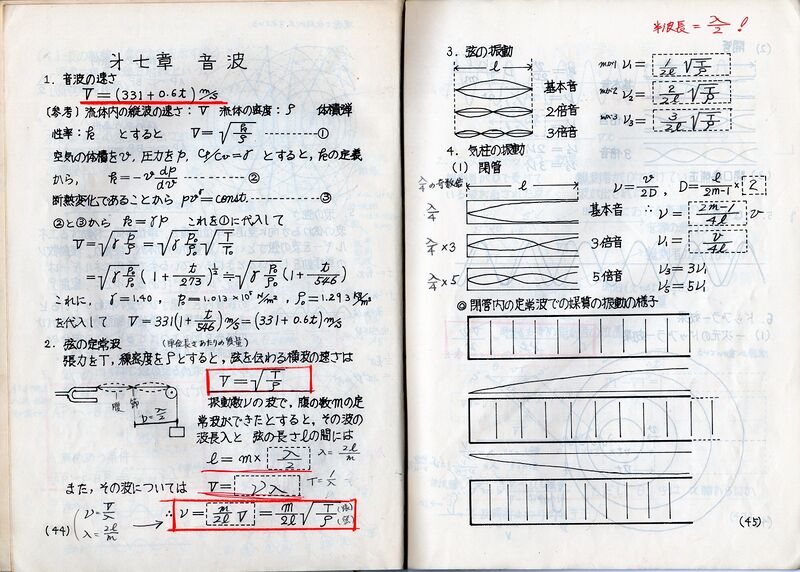 才七章 音波
1. 音波の速さ
V=(331+0.6t)m/s
〔参考〕流体内の縦波の速さ:V 流体の密度:ρ 体積弾
性率:k とすると V=√k/ρ ―①
空気の体積をv, 圧力をp, Cp/Cv=γ とすると, kの定義
から, k=-v dp/dv ―②
断熱変化であることから pv^γ=const. ―③
②と③から k=γp これを①に代入して
V=√γ p/ρ=√γ p₀/ρ₀ √T/T₀
=√γ p₀/ρ₀ (1+t/273)^½≒√γ p₀/ρ₀ (1+t/546)
これに, γ=1.40, p₀=1.013×10⁵N/m², ρ₀=1.293kg/m³
を代入して V=331(1+t/546)m/s=(331+0.6t)m/s
2. 弦の定常波 (単位長さあたりの質量)
張力をT, 線密度をρとすると, 弦を伝わる横波の速さは
V=√T/ρ
腹 節
b=λ/2
振動数νの波で, 腹の数mの定
常波ができたとすると, その波の
波長λと 弦の長さlの間には
l=m×λ/2 λ=2l/m
また, その波については V=νλ
∴ν=m/2l V=m/2l √T/ρ
ν=V/λ
λ=2l/m
(44)
半波長=λ/2!
3. 弦の振動
l
基本音
2倍音
3倍音
m=1 ν₁=1/2l √T/ρ
m=2 ν₂=2/2l √T/ρ
m=3 ν₃=3/2l √T/ρ
4. 気柱の振動
(1) 閉管
λ/4の奇数倍 l
λ/4 基本音
λ/4×3 3倍音
λ/4×5 5倍音
ν=v/2D, D=l/2m-1×2
∴ν=2m-1/4l v
ν₁=v/4l
ν₃=3ν₁
ν₅=5ν₁
◎閉管内の定常波での媒質の振動の様子
(45)